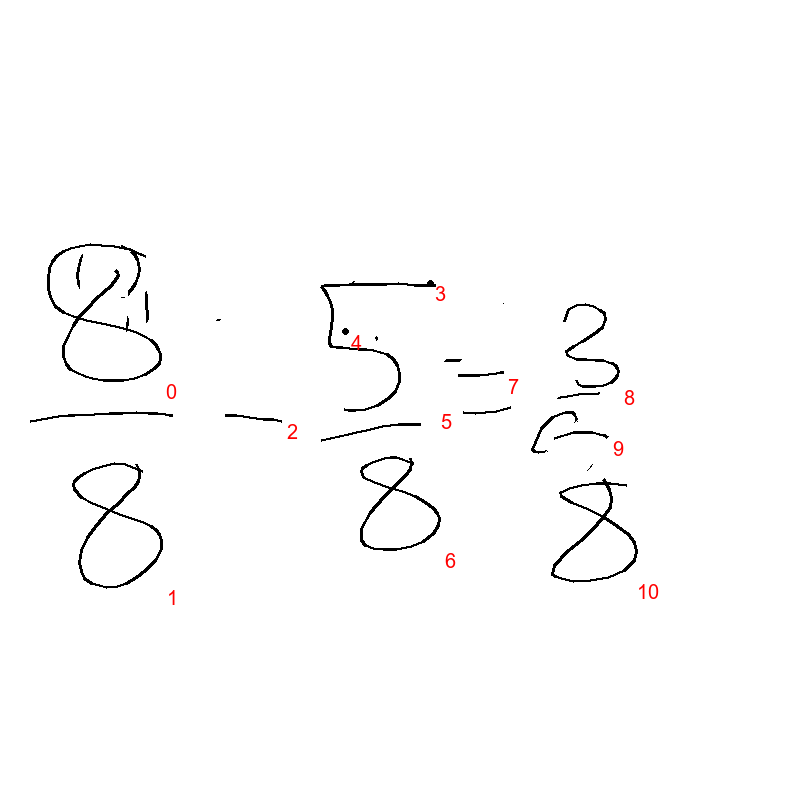 8/8 - 5/8 = 3/8
0
1
2
3
4
5
6
7
8
9
10